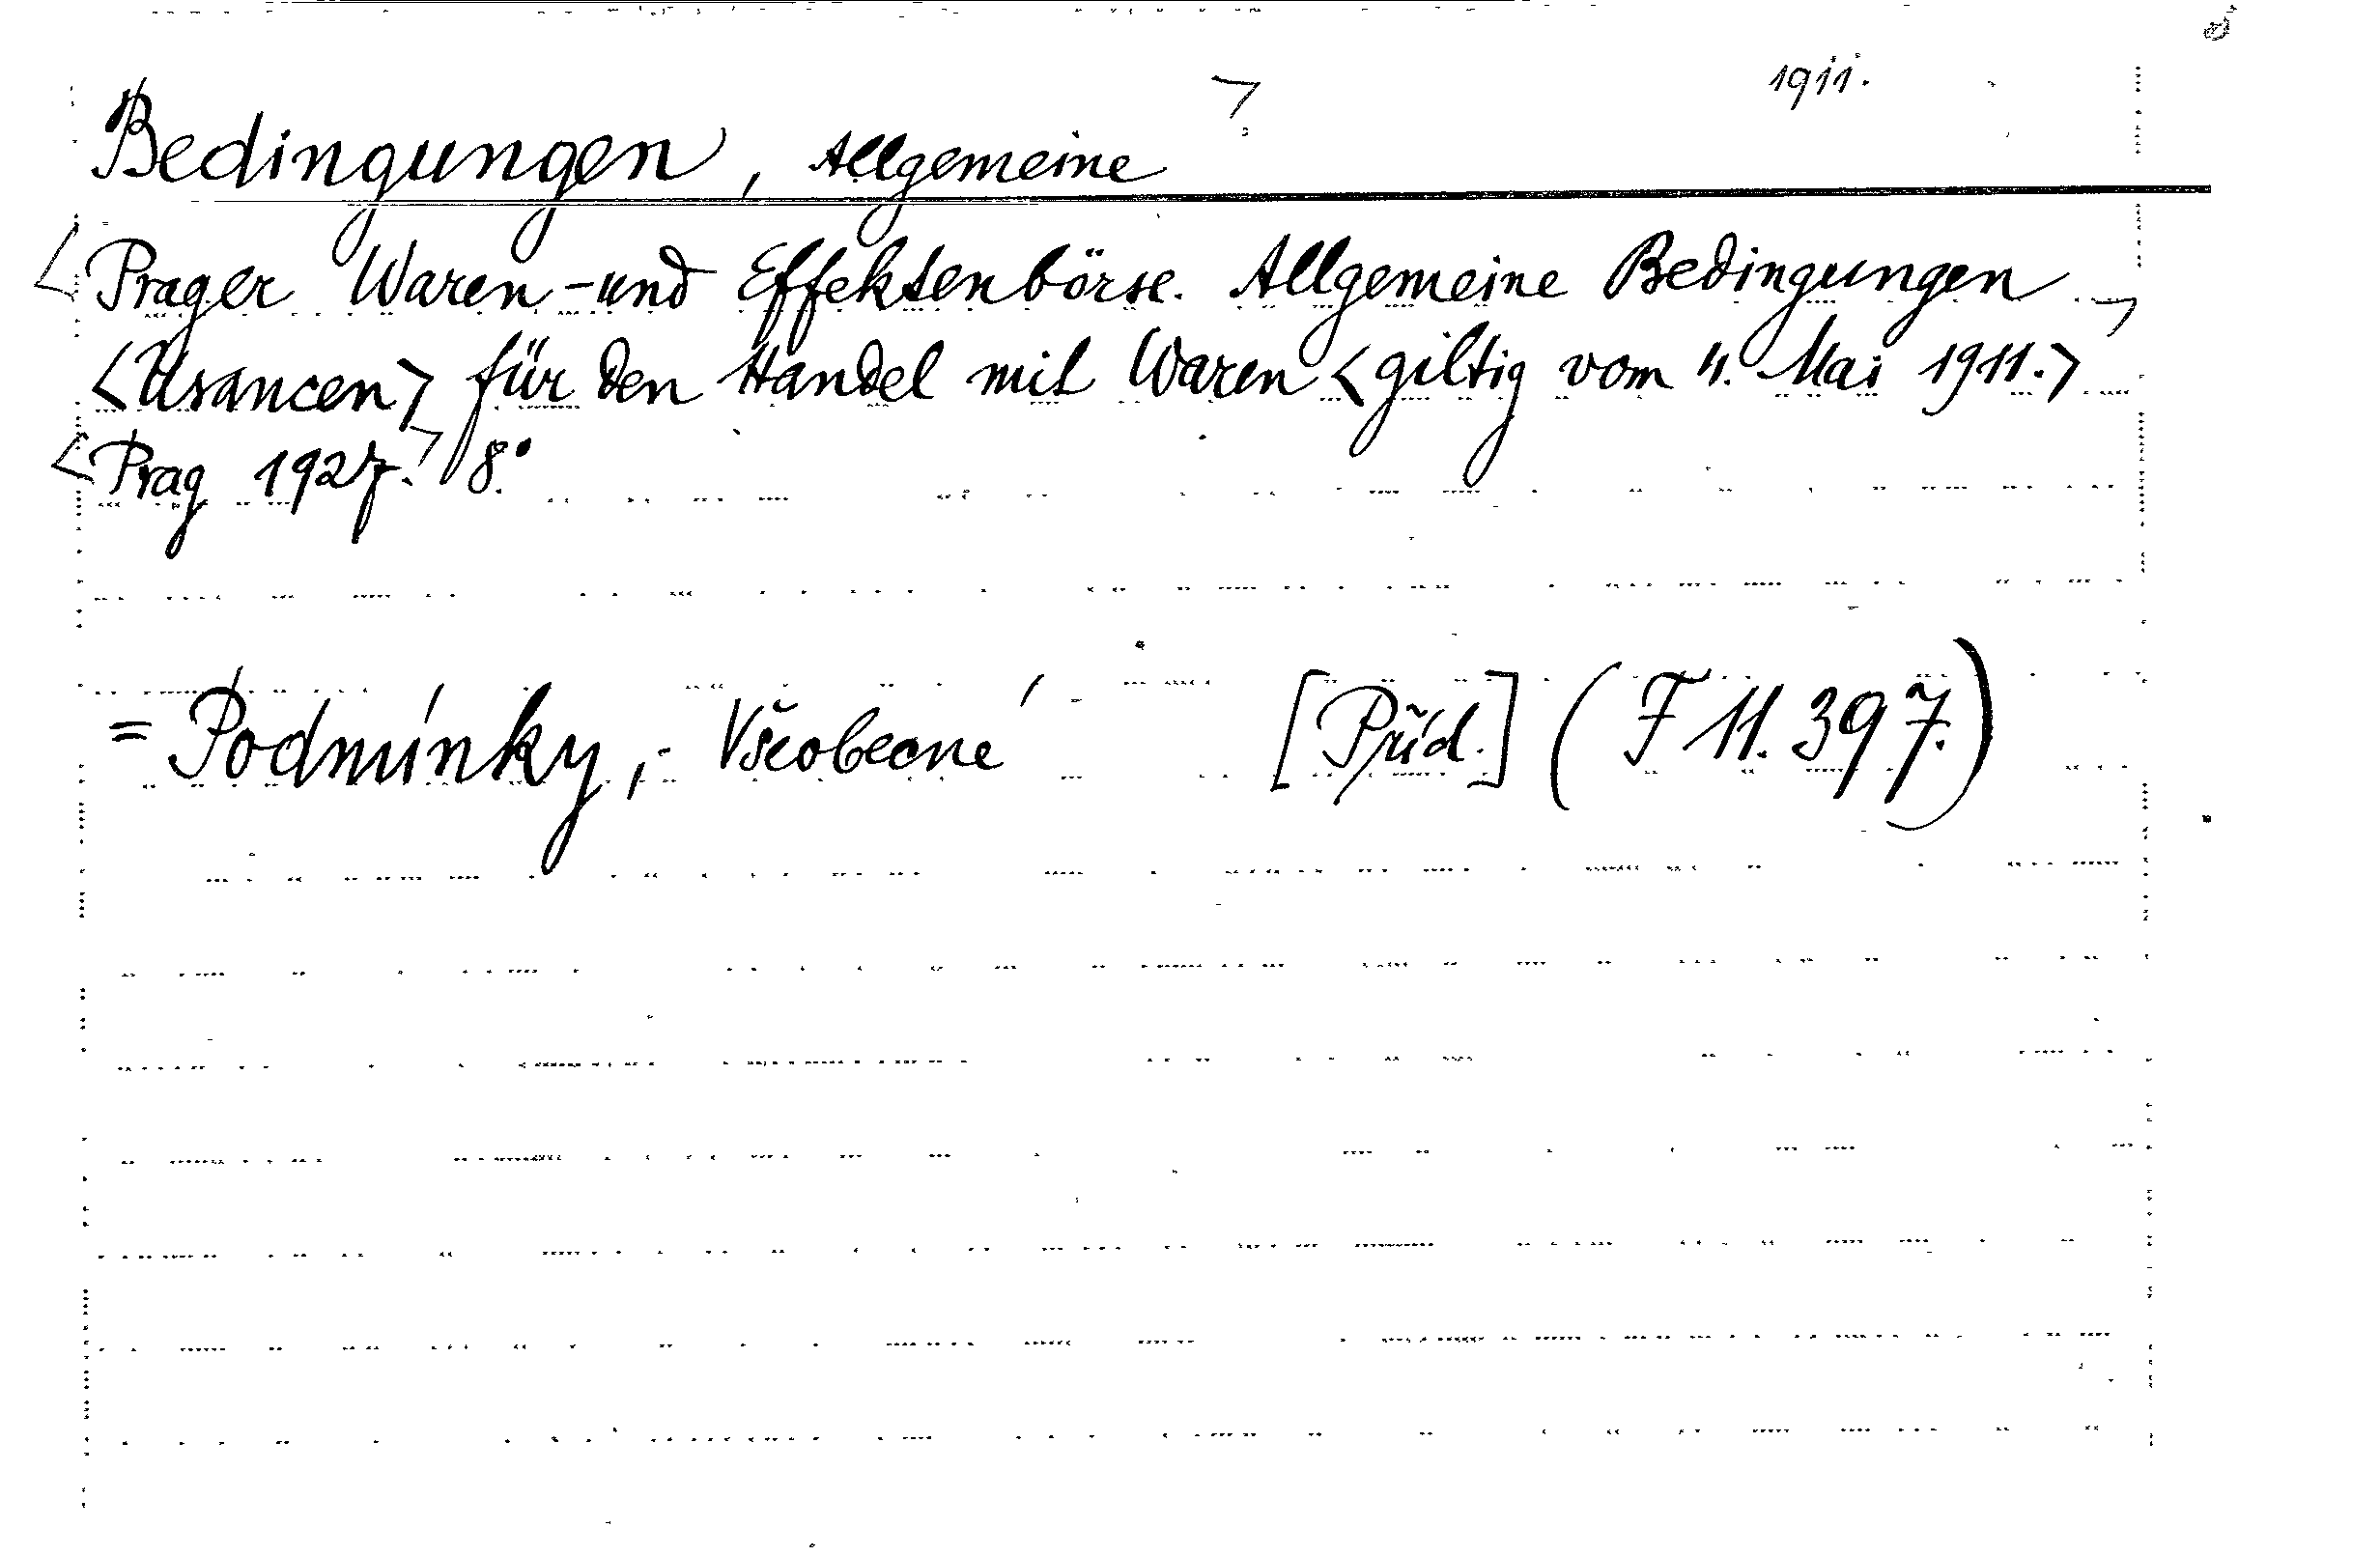 1911.
Bedingungen, Allgemeine
Prager Waren-und Effektenbörse. Allgemeine Bedingungen
<Usancen> für den Handel mit Waren <giltig vom 11. Mai 1911.>
Prag 1927. 8°
= Podmínky, Všeobecné [Příd.] (F 11.397.)